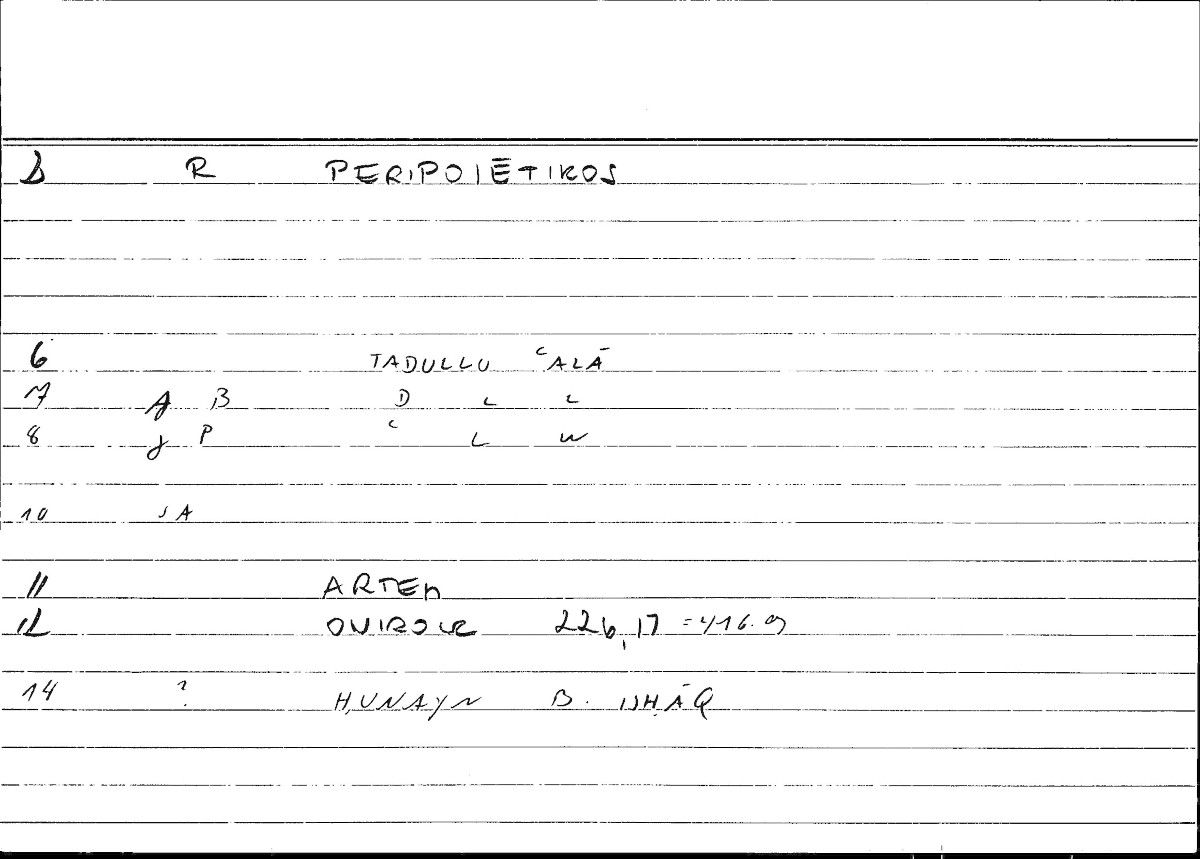 R PERIPOIĒTIKOS
6 TADULLU ʿALĀ
7 B D L L
8 P ʿ L W
10 A
11 ARTEM
12 OVIROCR 226,17 =416.9
14 ? ḤUNAYN B. ISḤĀQ